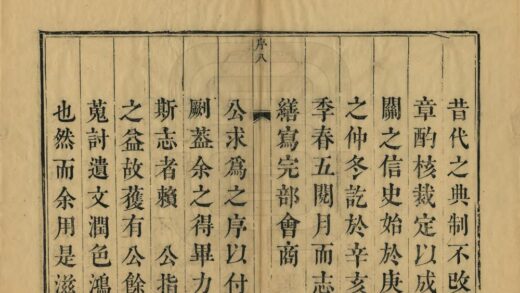 昔代之典制不改
章酌核裁定以成
關之信史始於庚
之仲冬訖於辛亥
季春五閱月而志
繕寫完部會商
序八
公求爲之序以付
劂蓋余之得畢力
斯志者賴　公指
之益故獲有公餘
蒐討遺文潤色鴻
也然而余用是滋